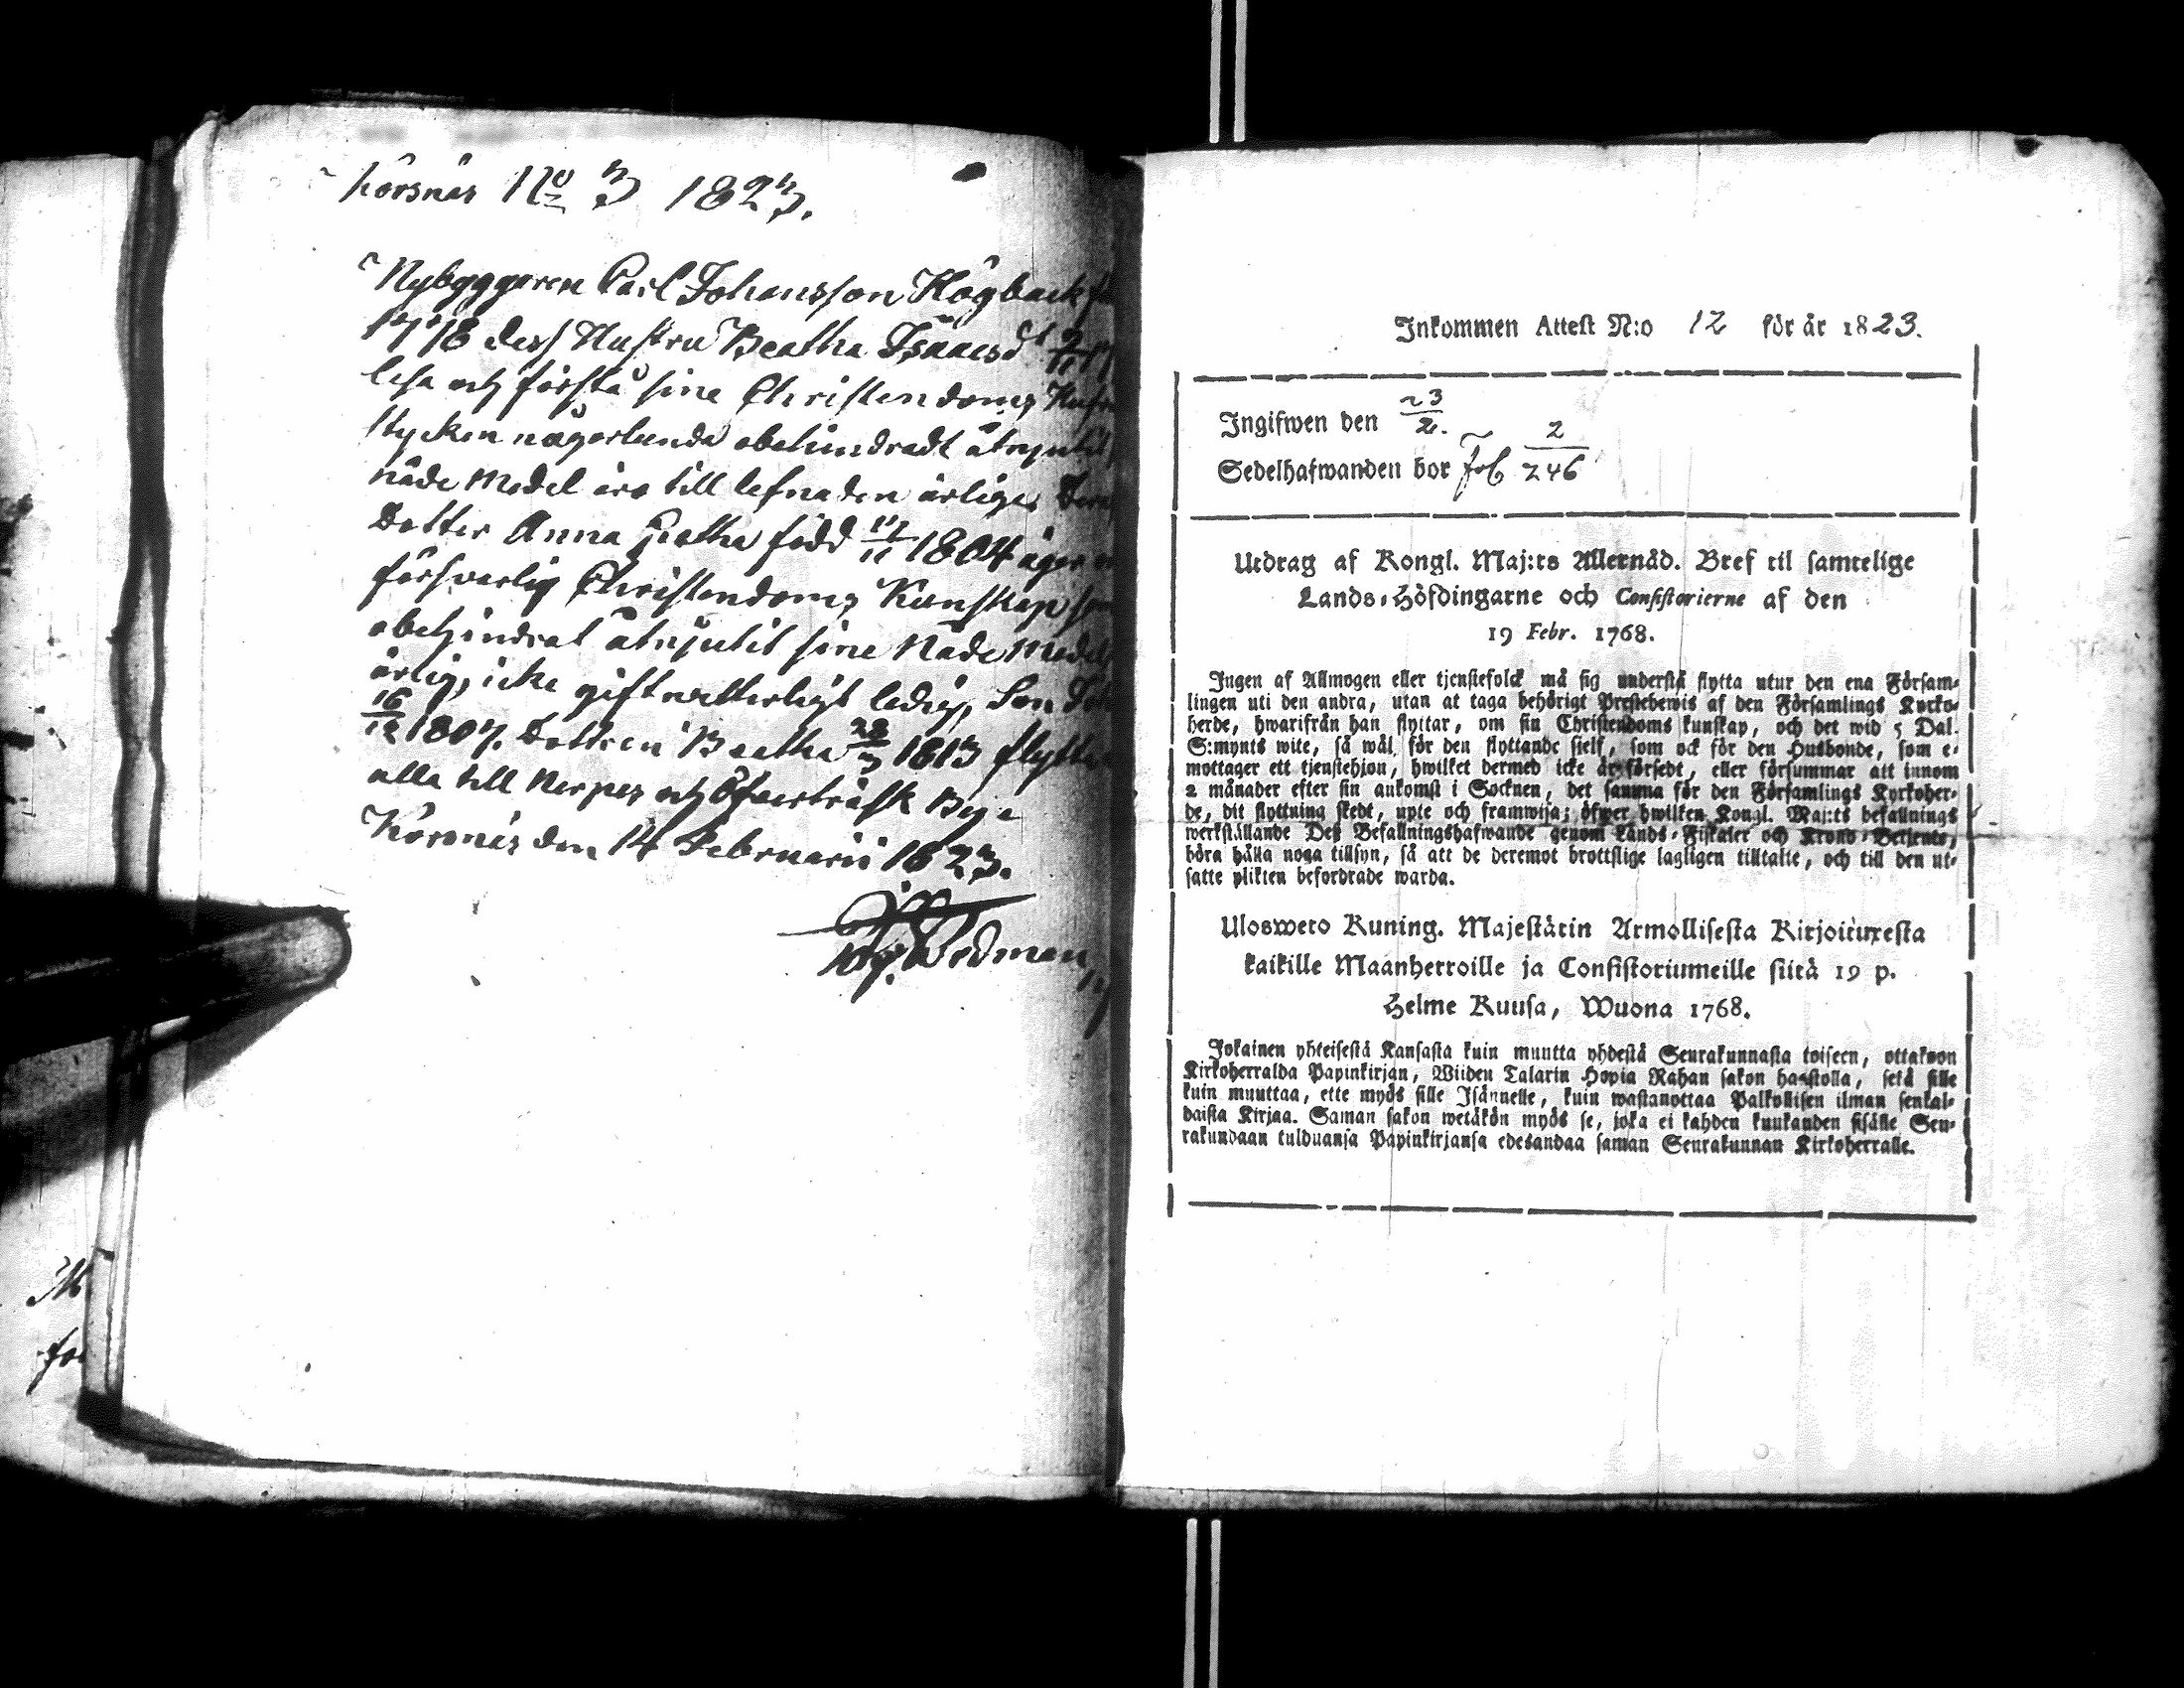 Korsnäs No 3 1823.
Nybyggaren Carl Johansson Högback
1778 dess Hustru Beatha Isaacsdr 9/11
läsa och förstå sine Christendoms
stycken någorlunda obehindradt åtnjutit
nåde Medel äro till lefnaden ärlige.
Dotter Anna Greatha född 17/11 1804 äger
försvarlig Christendoms Kunskap
obehindrat åtnjutit sine Nåde Medel
ärlig, icke giftvatterligt ledig, Son
16/12 1807. Dottren Beatha 28/3 1813 flytta
alla till Nerpes och Öfverträsk By
Korsnäs den 14 Februarii 1823.
Wedman
Inkommen Attest N:o 12 för år 1823.
Ingifwen den 23/2.
Sedelhafwanden bor Fol 2/246
Utdrag af Kongl. Maj:ts Allernåd. Bref til samtelige
Lands-Höfdingarne och Consistorierne af den
19 Febr. 1768.
Ingen af Allmogen eller tjenstefolck må sig understå flytta utur den ena Försam-
lingen uti den andra, utan at taga behörigt Prestebewis af den Församlings Kyrko-
herde, hwarifrån han flyttar, om sin Christendoms kunskap, och det wid 5 Dal.
S:mynts wite, så wäl för den flyttande sielf, som ock för den Husbonde, som e-
mottager ett tjenstehjon, hwilket dermed icke är försedt, eller försummar att innom
2 månader efter sin ankomst i Socknen, det samma för den Församlings Kyrkoher-
de, dit flyttning skedt, upte och framwisa; öfwer hwilken Kongl. Maj:ts befallnings
werkställande Deß Befallningshafwande genom Lands-Fiskaler och Krono-Betjente,
böra hålla noga tillsyn, så att de deremot brottslige lagligen tilltalte, och till den ut-
satte plikten befordrade warda.
Uloswето Kuning. Majestätin Armollisesta Kirjoituxesta
kaikille Maanherroille ja Consistoriumeille siitä 19 p.
Helme Kuusa, Wuona 1768.
Jokainen yhteisestä Kansasta kuin muutta yhdestä Seurakunnasta toiseen, ottakoon
Kirkoherralda Papinkirjan, Wiiden Talarin Hopia Rahan sakon haastolla, sekä sille
kuin muuttaa, ette myös sille Isännelle, kuin wastanottaa Palkollisen ilman senkal-
daista Kirjaa. Saman sakon wetäkön myös se, joka ei kahden kuukauden sisälle Seu-
rakundaan tulduansa Papinkirjansa edesandaa saman Seurakunnan Kirkoherralle.